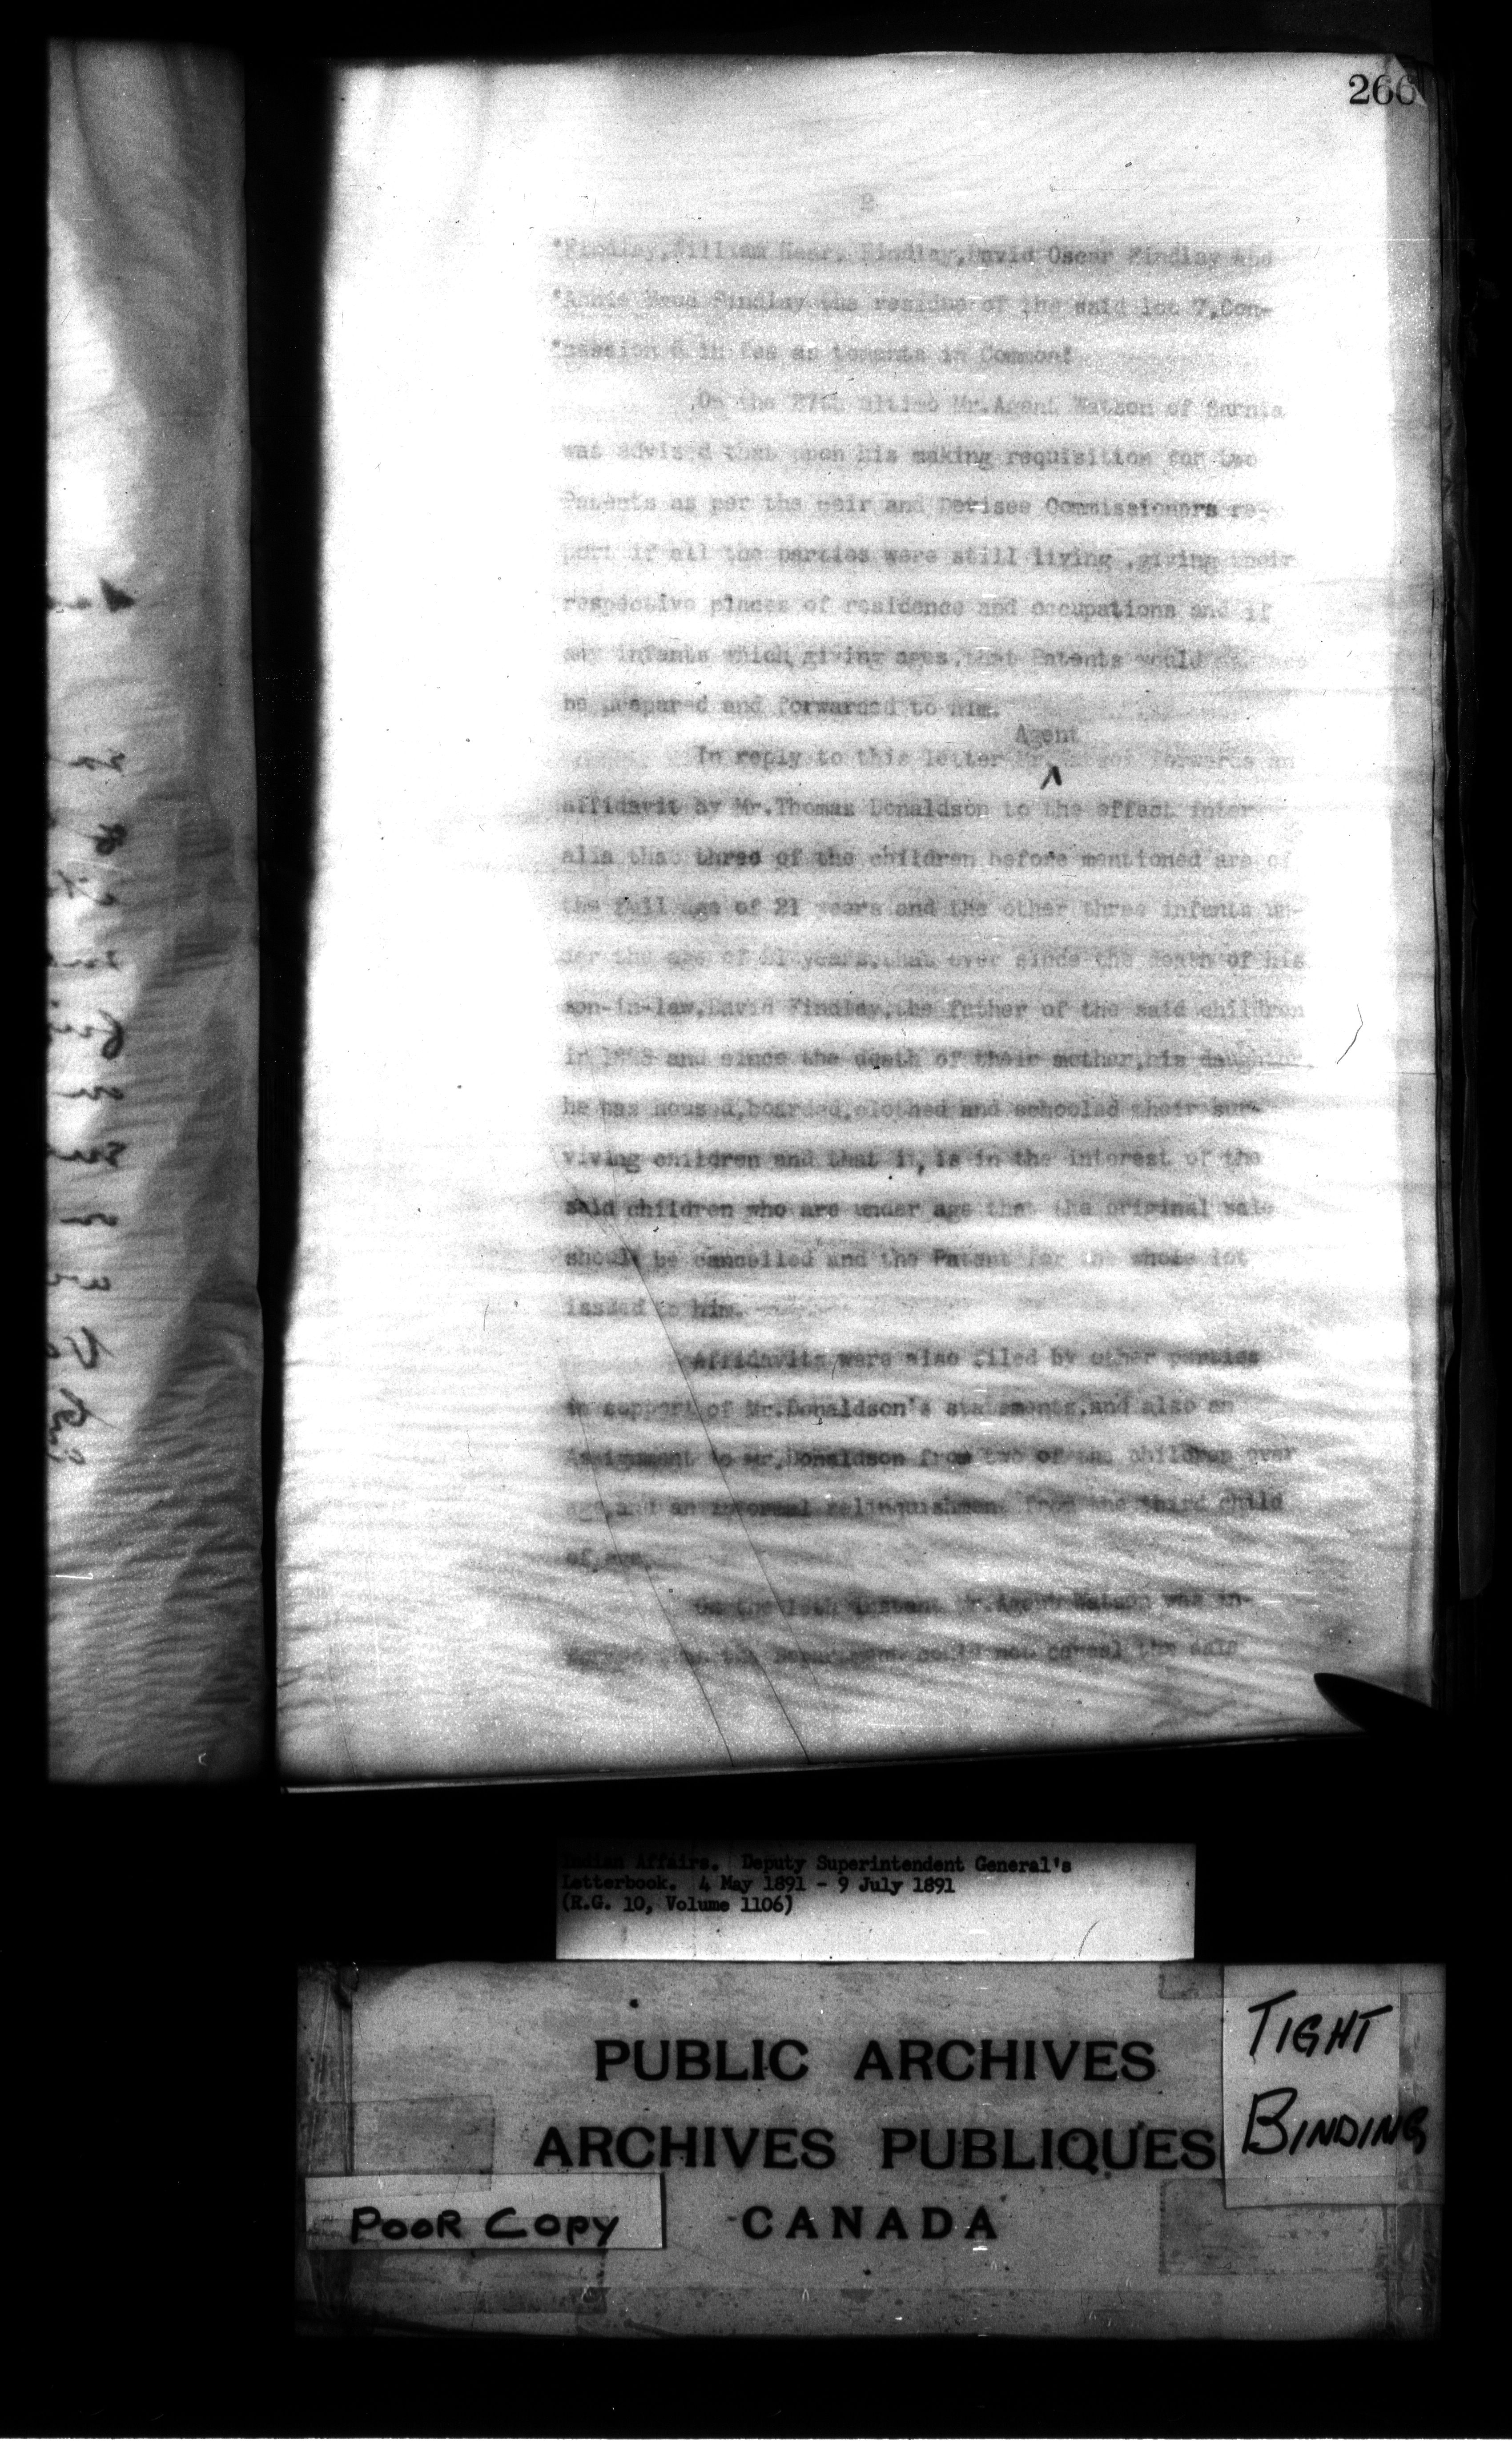 266
2
"Findlay, William Henr. Findlay, David Oscar Findlay and
"Annie Maud Findlay the residue of the said lot 7, Con-
"cession 6 in fee as tenants in Common"
On the 27th ultimo Mr. Agent Watson of Sarnia
was advised that upon his making requisition for two
Patents as per the Heir and Devisee Commissioners re-
port if all the parties were still living, giving their
respective places of residence and occupations and if
any infants which, giving ages, that Patents would
be prepared and forwarded to him.
Agent
In reply to this letter Mr. forwards an
affidavit by Mr. Thomas Donaldson to the effect inter
alia that three of the children before mentioned are of
the full age of 21 years and the other three infants un-
der the age of 21 years, that ever since the death of his
son-in-law, David Findlay, the father of the said children
in and since the death of their mother, his daughter
he has housed, boarded, clothed and schooled their sur-
viving children and that it, is in the interest of the
said children who are under age that the original sale
should be cancelled and the Patent for the whole lot
issued to him.
Affidavits were also filed by other parties
in support of Mr. Donaldson's statements, and also an
Assignment to Mr. Donaldson from two of the children over
age, and an informal relinquishment from the third child
of age.
On the instant Mr. Agent Watson was in-
formed that the Department could not cancel the sale
Indian Affairs. Deputy Superintendent General's
Letterbook. 4 May 1891 - 9 July 1891
(R.G. 10, Volume 1106)
PUBLIC ARCHIVES
ARCHIVES PUBLIQUES
CANADA
TIGHT
BINDING
POOR COPY